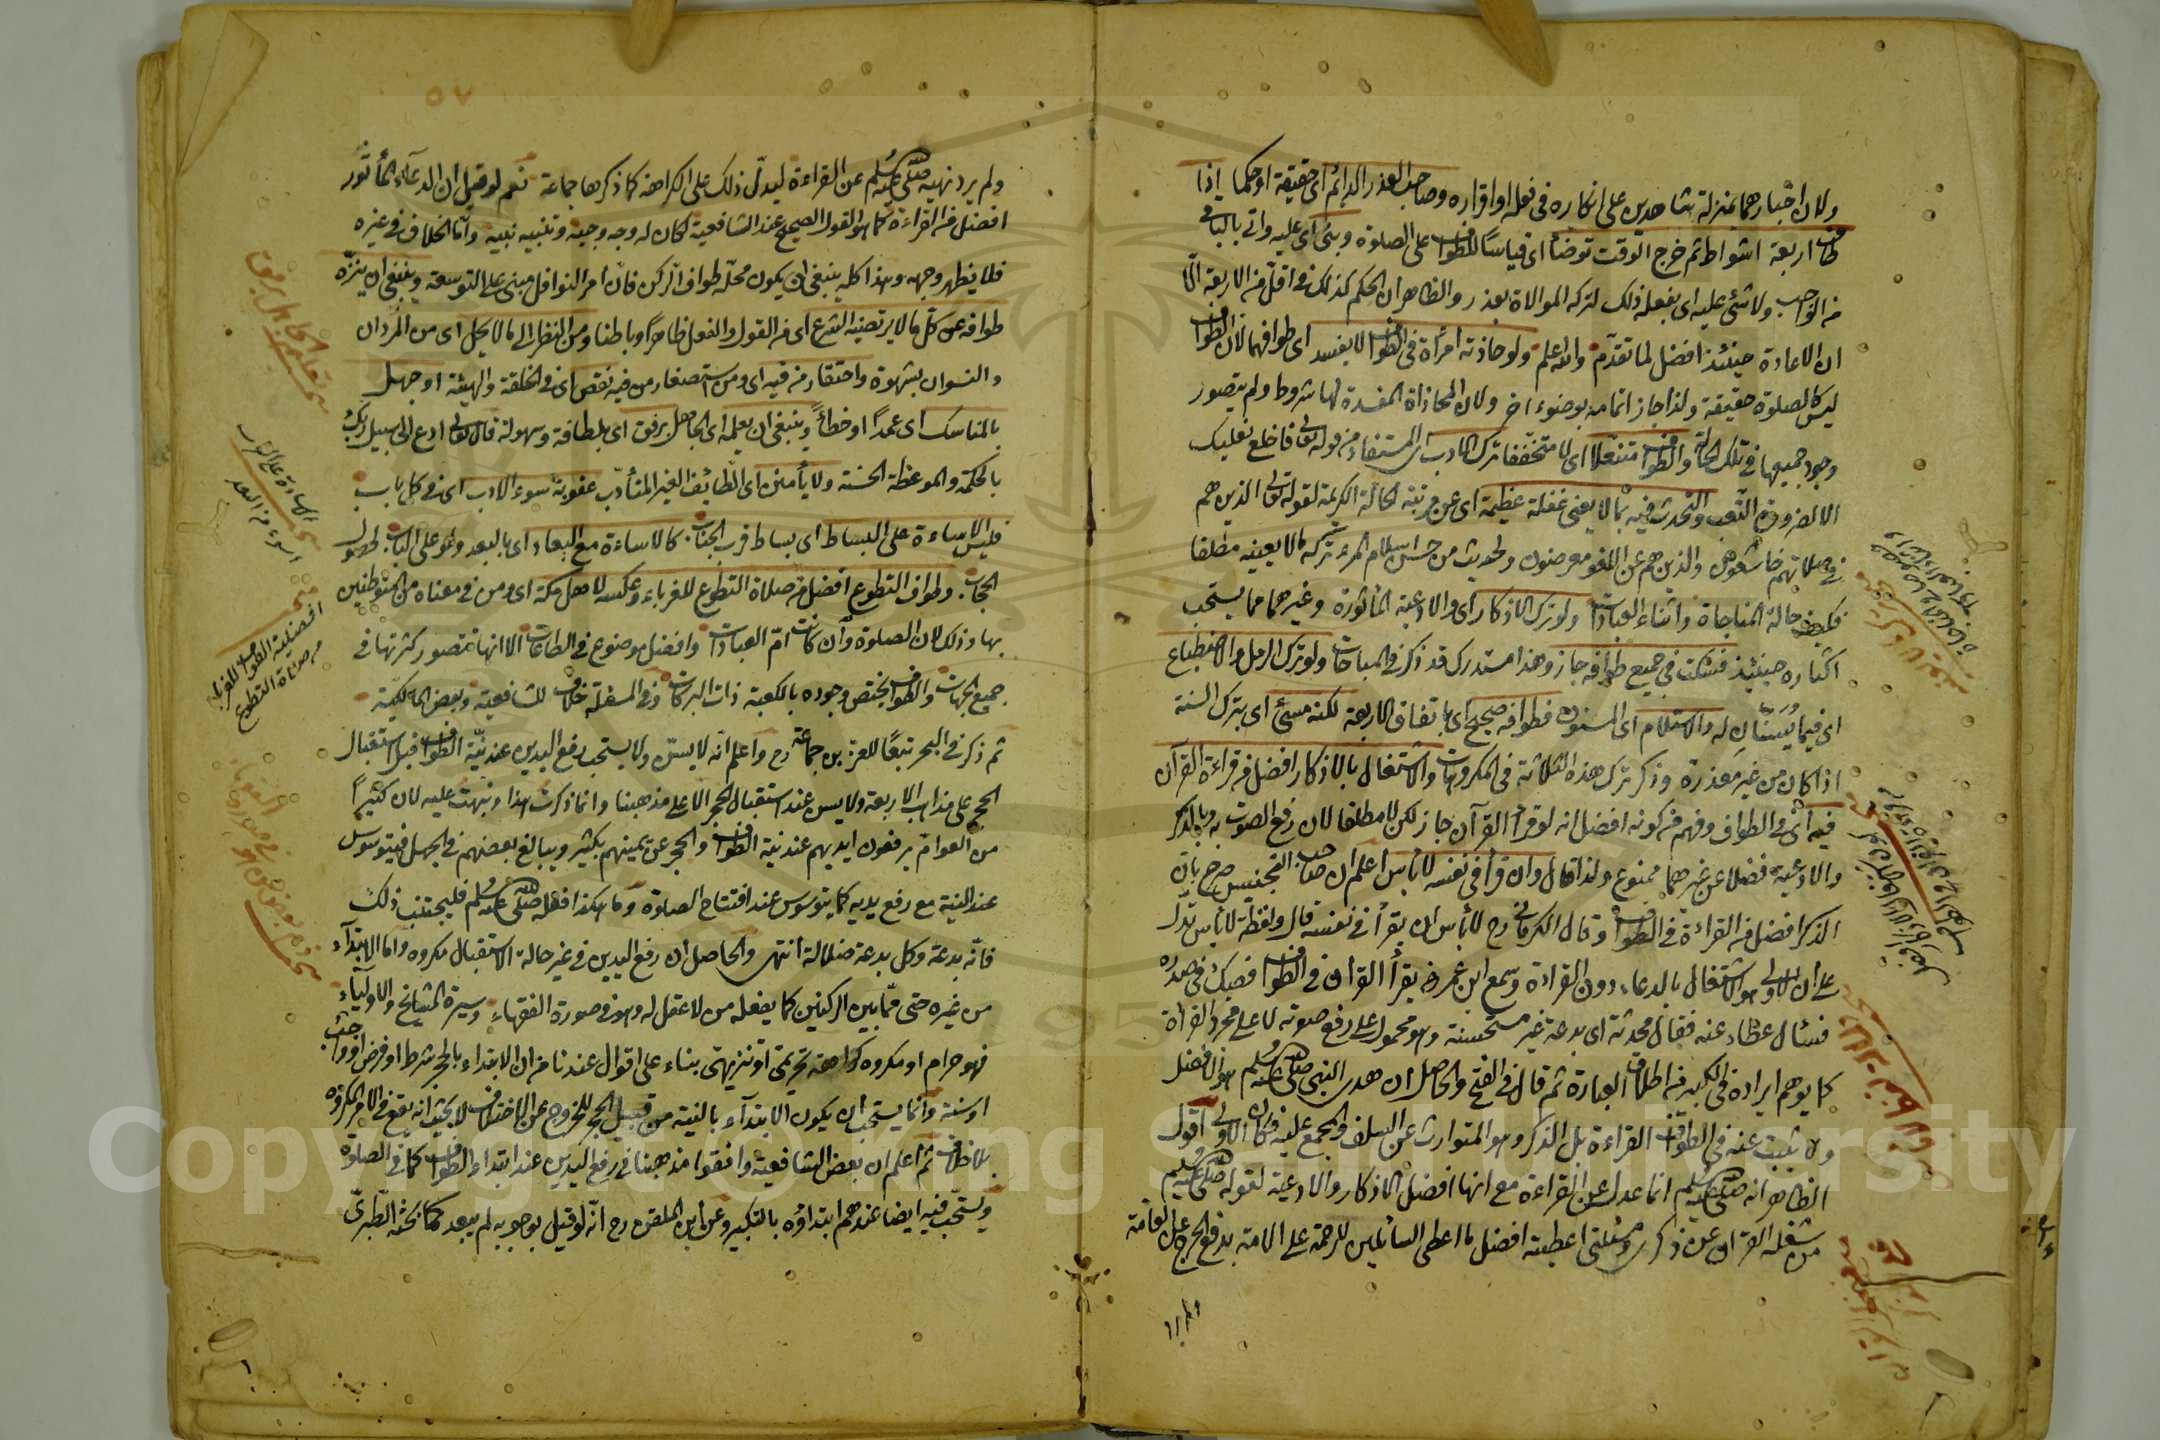 ولان اخبارهما بمنزلة شاهدين على انكاره في فعله او اقراره وصاحب العذر الدائم اى حقيقة او حكما اذا
طاف اربعة اشواط ثم خرج الوقت توضأ اى قياسًا للطواف على الصلوة وبنى اى عليه واتى بالباقى
من الواجب ولا شئ عليه اى بفعله ذلك لتركه الموالاة بعذر والظاهر ان الحكم كذلك في اقل من الاربعة الّا
ان الاعادة حينئذ افضل لما تقدّم والله اعلم ولو حاذته امرأة في الطواف لا يفسد اى طوافهما لان الطواف
ليس كالصلوة حقيقة ولذا جاز اتمامه بوضوء آخر ولان المحاذاة المفسدة لها شروط ولم يتصور
وجود جميعها في تلك الحالة والطواف متنعلا اى لا متخففا ترك الادب اى المستفاد من قوله تعالى فاخلع نعليك
الا لضرورة التعب والتحدث فيه بما لا يعنى غفلة عظيمة اى عن مرتبة الحالة الكريمة لقوله تعالى الذين هم
في صلاتهم خاشعون والذين هم عن اللغو معرضون ولحديث من حسن اسلام المرء تركه ما لا يعنيه مطلقا
فكيف حالة المناجاة واثناء العبادات ولو ترك الاذكار اى والادعية المأثورة وغيرهما مما يستحب
اكثاره حينئذ فسكت في جميع طوافه جاز وهذا مستدرك قد ذكر في المباحات ولو ترك الرمل والاضطباع
اى فيما يُسَنّان له والاستلام اى المسنون فطوافه صحيح اى باتفاق الاربعة لكنه مسئ اى بترك السنة
اذا كان من غير معذرة وذكر ترك هذه الثلاثة في المكروهات والاشتغال بالاذكار افضل من قراءة القرآن
فيه اى في الطواف وفهم من كونه افضل انه لو قرأ القرآن جاز لكن لا مطلقا لان رفع الصوت به وبالذكر
والادعية فضلا عن غيرهما ممنوع ولذا قال وان قرأ في نفسه لا بأس اعلم ان صاحب التجنيس صرح بان
الذكر افضل من القراءة في الطواف وقال الكرمانى رح لا بأس ان يقرأ في نفسه قال ولفظة لا بأس تدل
على ان الاولى هو الاشتغال بالدعاء دون القراءة وسمع ابن عمر رض يقرأ القرآن في الطواف فصك في صدره
فسئال عطاء عنه فقال محدثة اى بدعة غير مستحسنة وهو محمول على رفع صوته لا على مجرد القراءة
كما يوهم ايراده في الكبير من اطلاق العبارة ثم قال في الفتح والحاصل ان هدى النبى صلى الله عليه وسلم هو الافضل
ولا يثبت عنه في الطواف القراءة بل الذكر وهو المتوارث عن السلف والمجمع عليه فكان الاولى اقول
الظاهر انه صلى الله عليه وسلم انما عدل عن القراءة مع انها افضل الاذكار والادعية لقوله صلى الله عليه وسلم
من شغله القرآن عن ذكرى ومسئلتى اعطيته افضل ما اعطى السائلين للرحمة على الامة بدفع الحرج على العامة
ولم يرد نهيه صلى الله عليه وسلم عن القراءة ليدلّ ذلك على الكراهة كما ذكرها جماعة نعم لو قيل ان الدعاء المأثور
افضل من القراءة كما هو القول الصحيح عند الشافعية لكان له وجه وجيه وتنبيه نبيه واما الخلاف في غيره
فلا يظهر وجهه وهذا كله ينبغى ان يكون محلّه طواف الركن فانّ امر النوافل مبنى على التوسعة وينبغى ان ينزّه
طوافه عن كل ما لا يرتضيه الشرع اى من القول والفعل ظاهرًا وباطنا ومن النظر الى ما لا يحل اى من المردان
والنسوان بشهوة واحتقار من فيه اى ومن استصغار من فيه نقص اى في الخلقة والهيئة او جهل
بالمناسك اى عمدًا او خطأً وينبغى ان يعلمه اى الجاهل برفق اى بلطافة وسهولة قال تعالى ادع الى سبيل ربك
بالحكمة والموعظة الحسنة ولا يأمن اى الطائف الغير المتأدّب عقوبة سوء الادب اى في كل باب
فليس الاساءة على البساط اى بساط قرب الجناب كالاساءة مع البعاد اى بالبعد ولو على الباب لحصول
الحجاب وطواف التطوع افضل من صلاة التطوع للغرباء وعكسه لاهل مكة اى ومن في معناه من المتوطنين
بها وذلك لان الصلوة وان كانت امّ العبادات وافضل موضوع في الطاعات الا انها تتصور كثرتها في
جميع الجهات والطواف يختص وجوده بالكعبة ذات البركات وفي المسئلة خلاف للشافعية وبعض المالكيّة
ثم ذكر في البحر تبعًا للعز بن جماعة رح واعلم انّه لا يسنّ ولا يستحب رفع اليدين عند نيّة الطواف قبل استقبال
الحجر على مذاهب الاربعة ولا يسن عند استقبال الحجر الا على مذهبنا وانما ذكرت هذا ونبهت عليه لان كثيرًا
من العوام يرفعون ايديهم عند نية الطواف والحجر عن يمينهم بكثير ويبالغ بعضهم في الجهل فيتوسوس
عند النية مع رفع يديه كما يتوسوس عند افتتاح الصلوة وما هكذا فعله صلى الله عليه وسلم فليجتنب ذلك
فانّه بدعة وكل بدعة ضلالة انتهى والحاصل ان رفع اليدين في غير حالة الاستقبال مكروه واما الابتداء
من غيره حتى ممّا بين الركنين كما يفعله من لا عقل له وهو في صورة الفقهاء وسيرة المشايخ والاولياء
فهو حرام او مكروه كراهة تحريمًا او تنزيهيّ بناء على اقوال عندنا من ان الابتداء بالحجر شرط او فرض او واجب
او سنة وانما يستحب ان يكون الابتداء بالنية من قبيل الحجر للخروج عن الاختلاف لا بحيث انه يقع في الامر المكروه
بلا خلاف ثم اعلم ان بعض الشافعية وافقوا مذهبنا في رفع اليدين عند ابتداء الطواف كما في الصلوة
ويستحب فيه ايضا عندهم ابتداؤه بالتكبير وعن ابن الملقن رح انّه لو قيل بوجوبه لم يبعد كما بحثه الطبرى
٥٧
مبحث تعليم الجاهل برفق
افضلية الطواف للغرباء
من صلاة التطوع
ولم